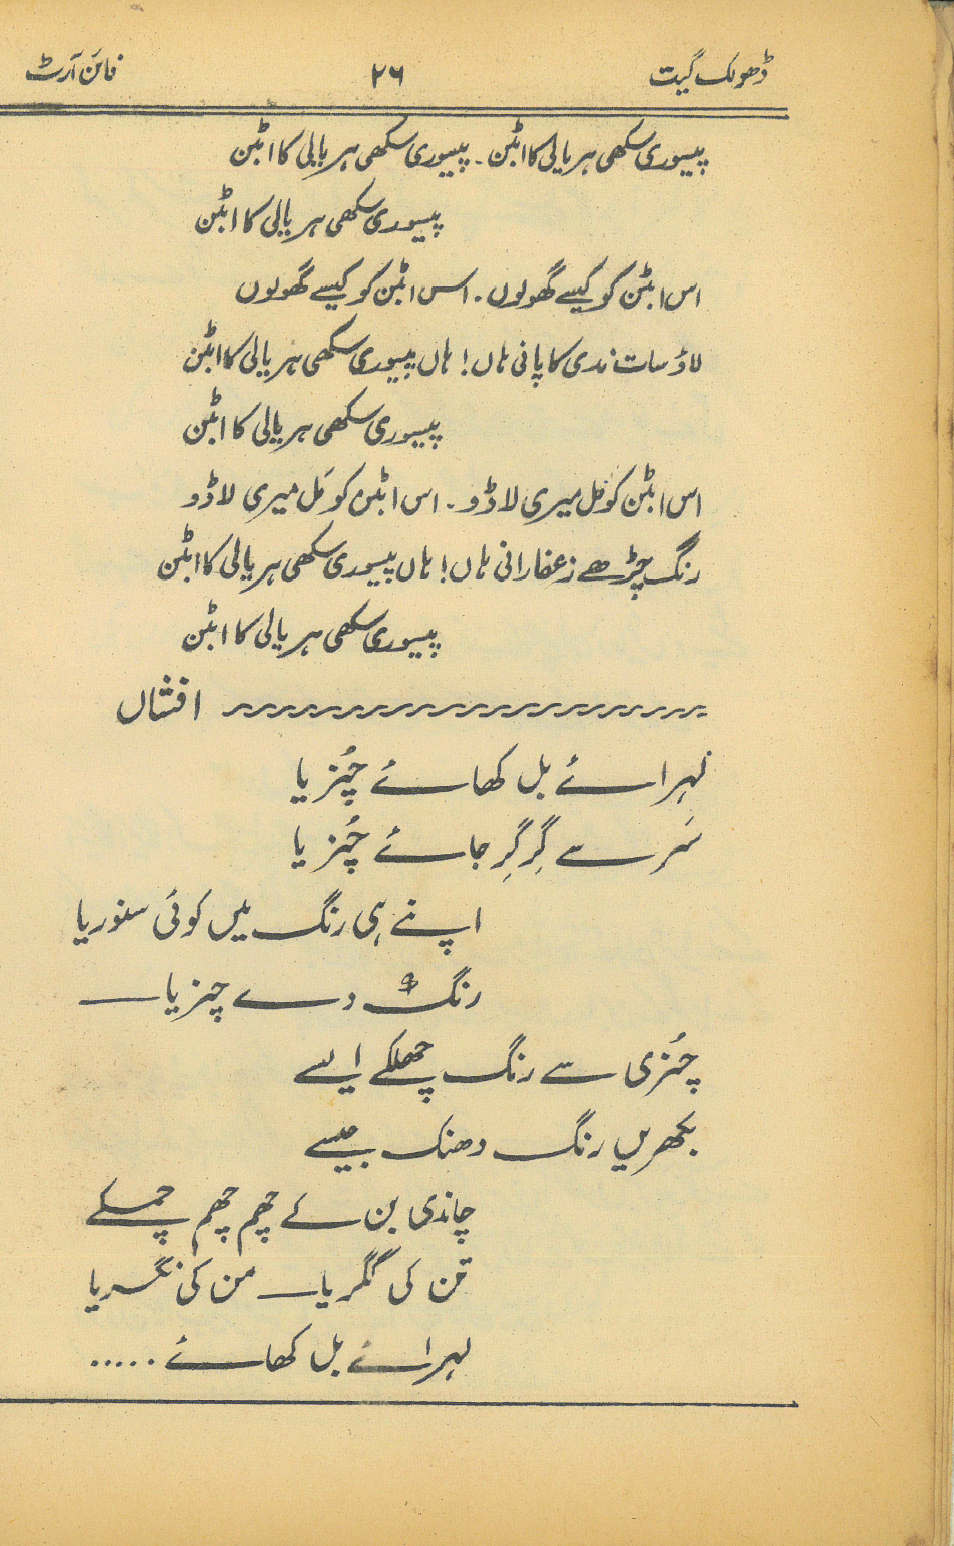 ڈھولک گیت ۲۶ فائن آرٹ
پیسوری سکھی ہریالی کا ابٹن ۔ پیسوری سکھی ہریالی کا ابٹن
پیسوری سکھی ہریالی کا ابٹن
اس ابٹن کو کیسے گھولوں ۔ اس ابٹن کو کیسے گھولوں
لاؤ سات ندی کا پانی ہاں ! ہاں پیسوری سکھی ہریالی کا ابٹن
پیسوری سکھی ہریالی کا ابٹن
اس ابٹن کو مَل میری لاڈو ۔ اس ابٹن کو مَل میری لاڈو
رنگ چڑھے زعفارانی ہاں ! ہاں پیسوری سکھی ہریالی کا ابٹن
پیسوری سکھی ہریالی کا ابٹن
افشاں
لہرائے بل کھائے چُنریا
سَر سے گِر گِر جائے چُنریا
اپنے ہی رنگ میں کوئی سنوریا
رنگ دے چنریا
چُنری سے رنگ چھلکے ایسے
بکھریں رنگ دھنک جیسے
چاندی بن کے چھم چھم چمکے
تن کی گگریا من کی نگریا
لہرائے بل کھائے .....